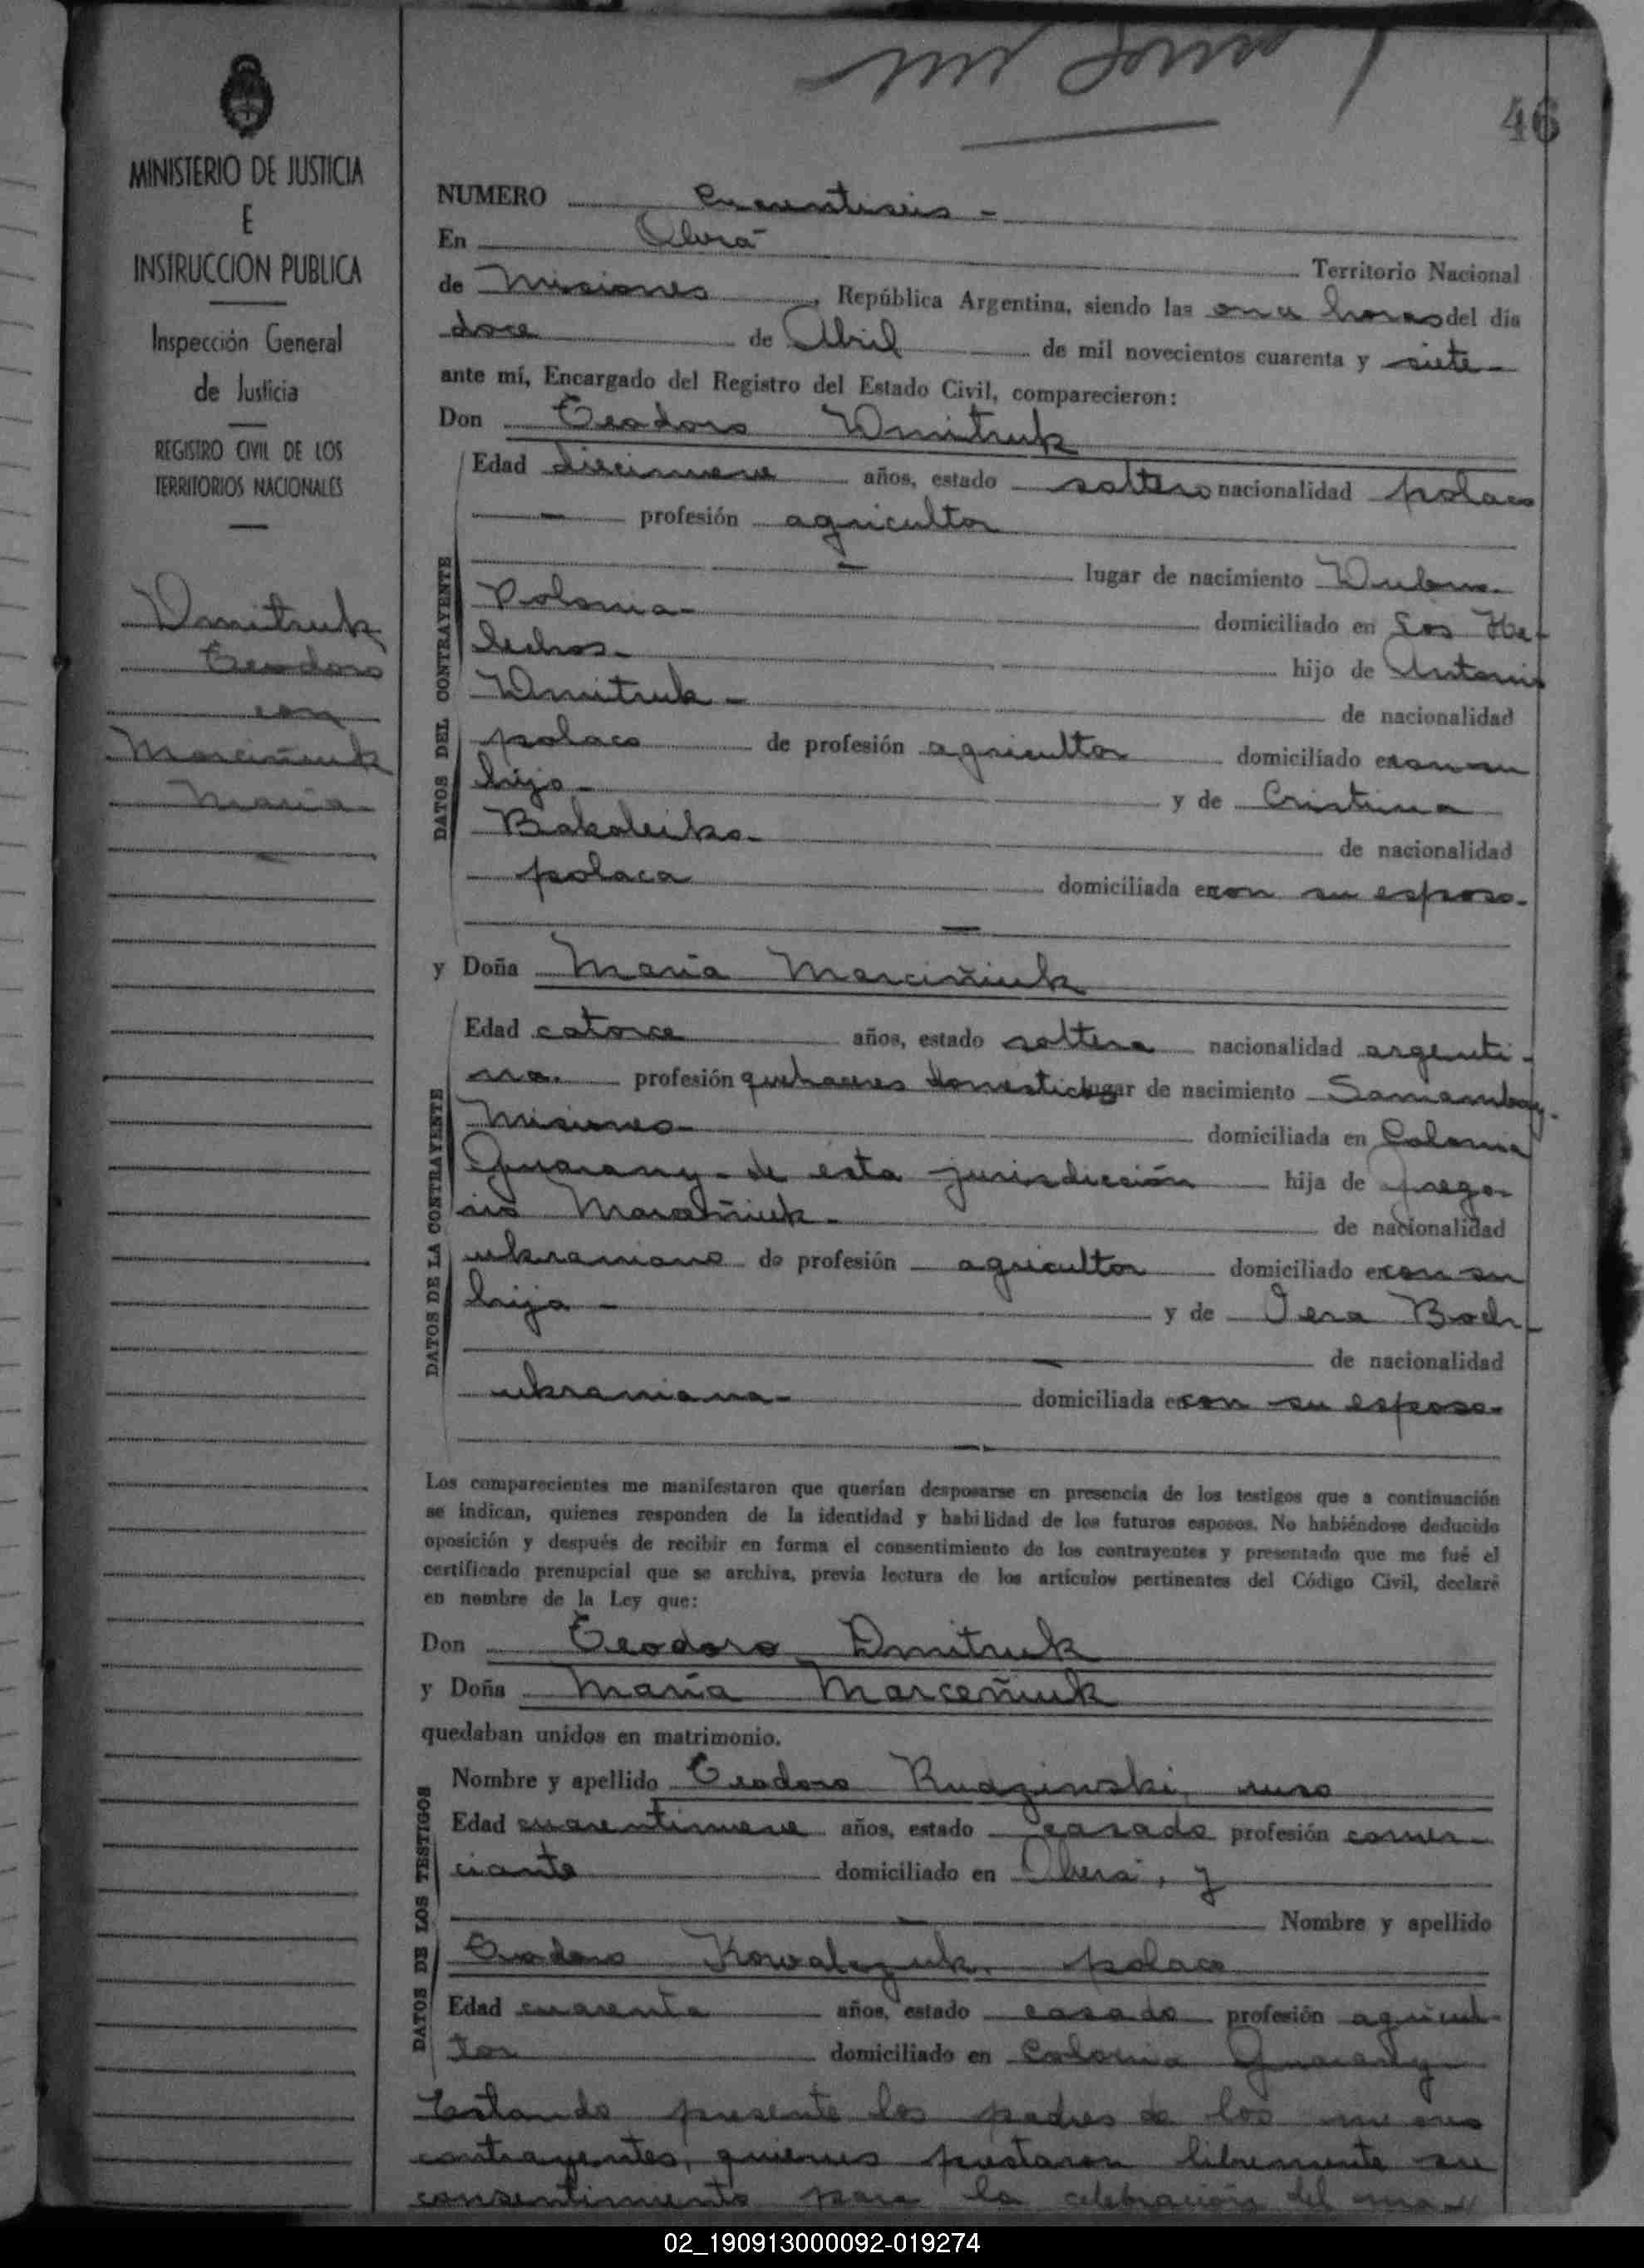 46
MINISTERIO DE JUSTICIA
E
INSTRUCCION PUBLICA
Inspección General
de Justicia
REGISTRO CIVIL DE LOS
TERRITORIOS NACIONALES
Dmitruk
Teodoro
con
Marciñiuk
Maria
NUMERO Cuarentiseis -
En Oberá
Territorio Nacional
de Misiones, República Argentina, siendo las once horas del día
doce de Abril de mil novecientos cuarenta y siete
ante mí, Encargado del Registro del Estado Civil, comparecieron:
Don Teodoro Dmitruk
DATOS DEL CONTRAYENTE
Edad diecinueve años, estado soltero nacionalidad polaco
profesión agricultor
lugar de nacimiento Dubno
Polonia- domiciliado en Los He-
lechos- hijo de Antonio
Dmitruk - de nacionalidad
polaco de profesión agricultor domiciliado en con su
hijo - y de Cristina
de nacionalidad
polaca domiciliada en con su esposo-
y Doña Maria Marciñiuk
DATOS DE LA CONTRAYENTE
Edad catorce años, estado soltera nacionalidad argenti-
na. profesión quehaceres domestic lugar de nacimiento Samambay-
Misiones- domiciliada en Colonia
Guarany- de esta jurisdicción hija de Grego-
rio de nacionalidad
ukraniano de profesión agricultor domiciliado en con su
hija - y de
de nacionalidad
ukraniana- domiciliada en con su esposo-
Los comparecientes me manifestaron que querían desposarse en presencia de los testigos que a continuación
se indican, quienes responden de la identidad y habilidad de los futuros esposos. No habiéndose deducido
oposición y después de recibir en forma el consentimiento de los contrayentes y presentado que me fué el
certificado prenupcial que se archiva, previa lectura de los artículos pertinentes del Código Civil, declaré
en nombre de la Ley que:
Don Teodoro Dmitruk
y Doña Maria Marceñiuk
quedaban unidos en matrimonio.
DATOS DE LOS TESTIGOS
Nombre y apellido Teodoro Rudzinski, ruso
Edad cuarentinueve años, estado casado profesión comer-
ciante domiciliado en Oberá, y
Nombre y apellido
Teodoro Kowalczuk, polaco
Edad cuarenta años, estado casado profesión agricul-
tor domiciliado en Colonia Guarany
Estando presente los padres de los menores
contrayentes, quienes prestaron libremente su
consentimiento para la celebración del
02_190913000092-019274